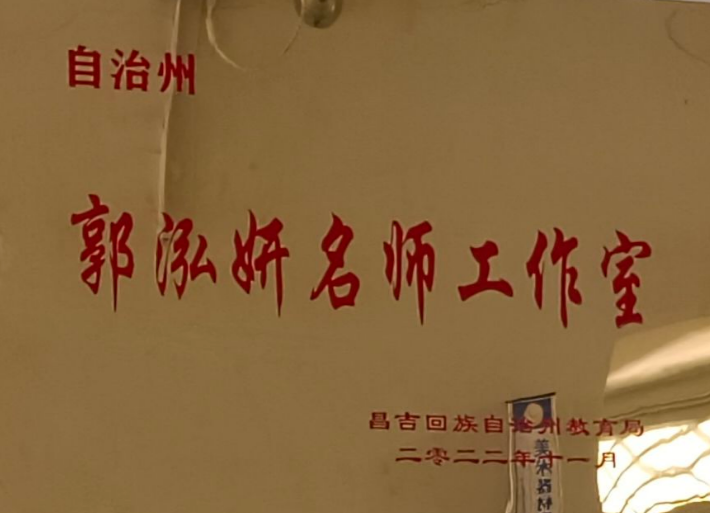 自治州
郭泓妍名师工作室
昌吉回族自治州教育局
二零二二年十一月
美术器材